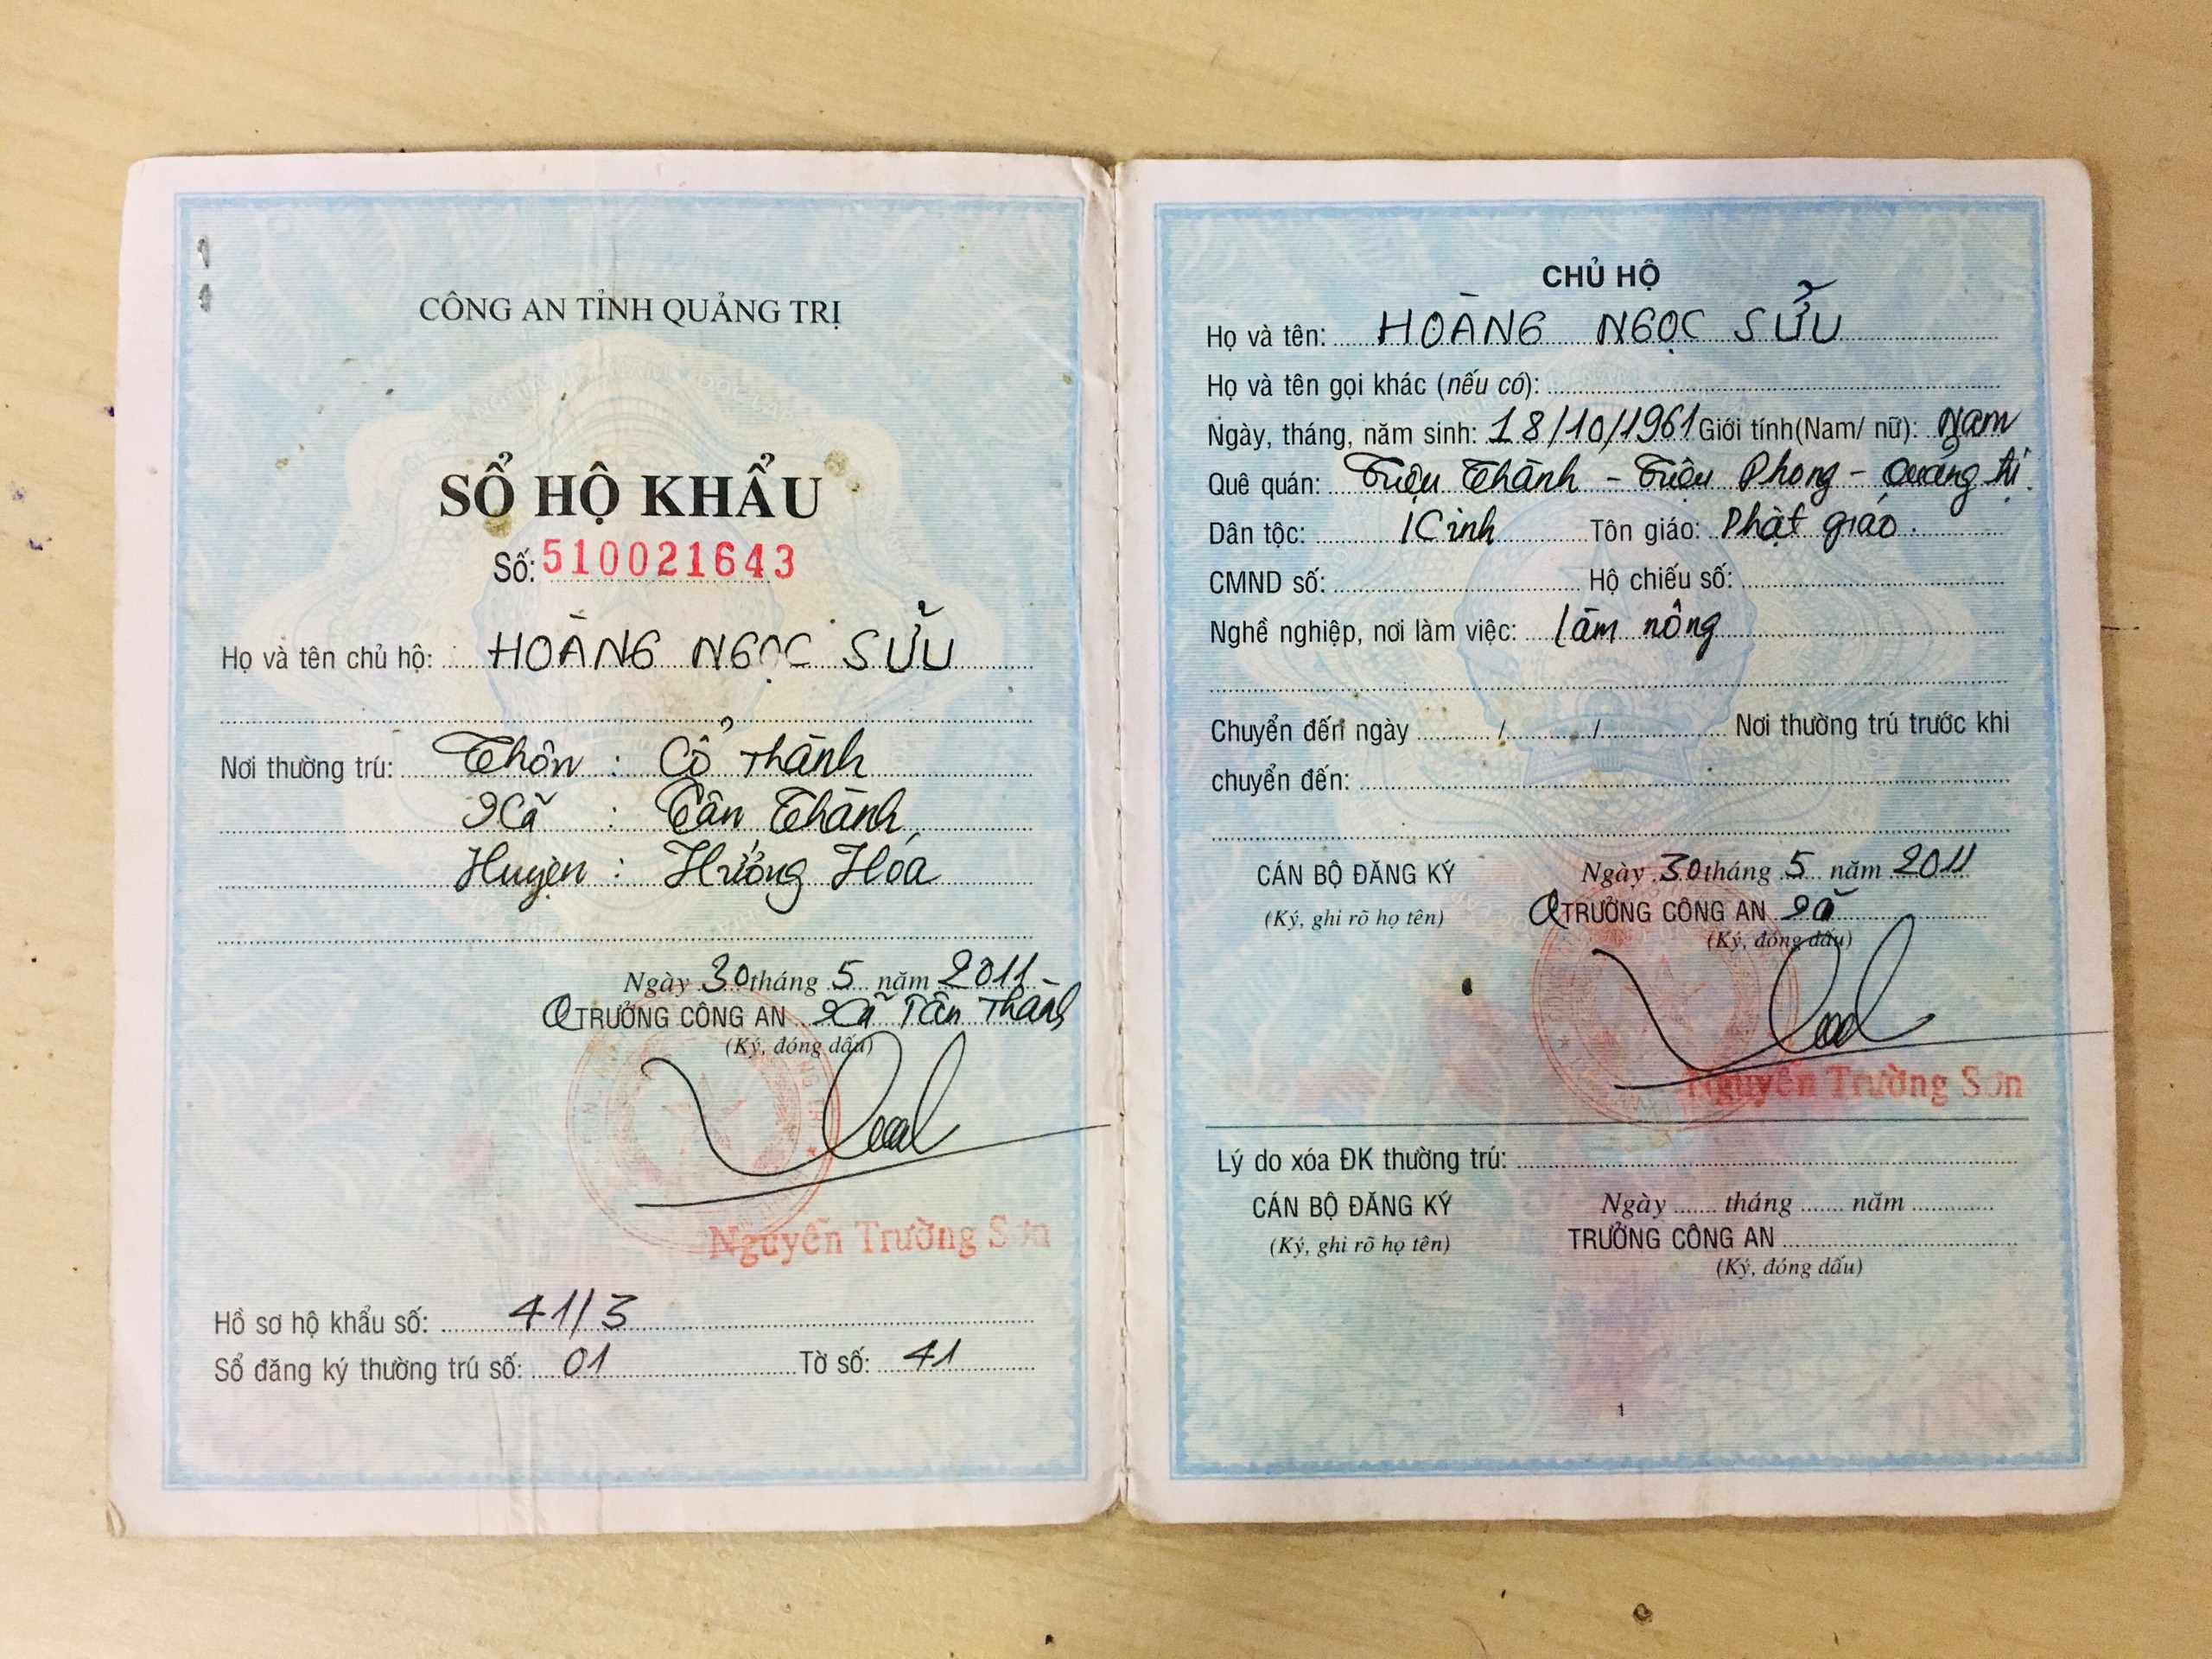 CÔNG AN TỈNH QUẢNG TRỊ
SỔ HỘ KHẨU
Số: 510021643
Họ và tên chủ hộ: HOÀNG NGỌC SỬU
Nơi thường trú: Thôn : Cổ Thành
Xã : Tân Thành
Huyện : Hướng Hóa
Ngày 30 tháng 5 năm 2011
QTRƯỞNG CÔNG AN Xã Tân Thành
(Ký, đóng dấu)
Nguyễn Trường Sơn
Hồ sơ hộ khẩu số: 41/3
Sổ đăng ký thường trú số: 01 Tờ số: 41
CHỦ HỘ
Họ và tên: HOÀNG NGỌC SỬU
Họ và tên gọi khác (nếu có):
Ngày, tháng, năm sinh: 18/10/1961 Giới tính(Nam/ nữ): Nam
Quê quán: Triệu Thành - Triệu Phong - Quảng Trị.
Dân tộc: Kinh Tôn giáo: Phật giáo.
CMND số: Hộ chiếu số:
Nghề nghiệp, nơi làm việc: làm nông
Chuyển đến ngày / / Nơi thường trú trước khi
chuyển đến:
CÁN BỘ ĐĂNG KÝ Ngày 30 tháng 5 năm 2011
(Ký, ghi rõ họ tên) QTRƯỞNG CÔNG AN Xã
(Ký, đóng dấu)
Nguyễn Trường Sơn
Lý do xóa ĐK thường trú:
CÁN BỘ ĐĂNG KÝ Ngày tháng năm
(Ký, ghi rõ họ tên) TRƯỞNG CÔNG AN
(Ký, đóng dấu)
1